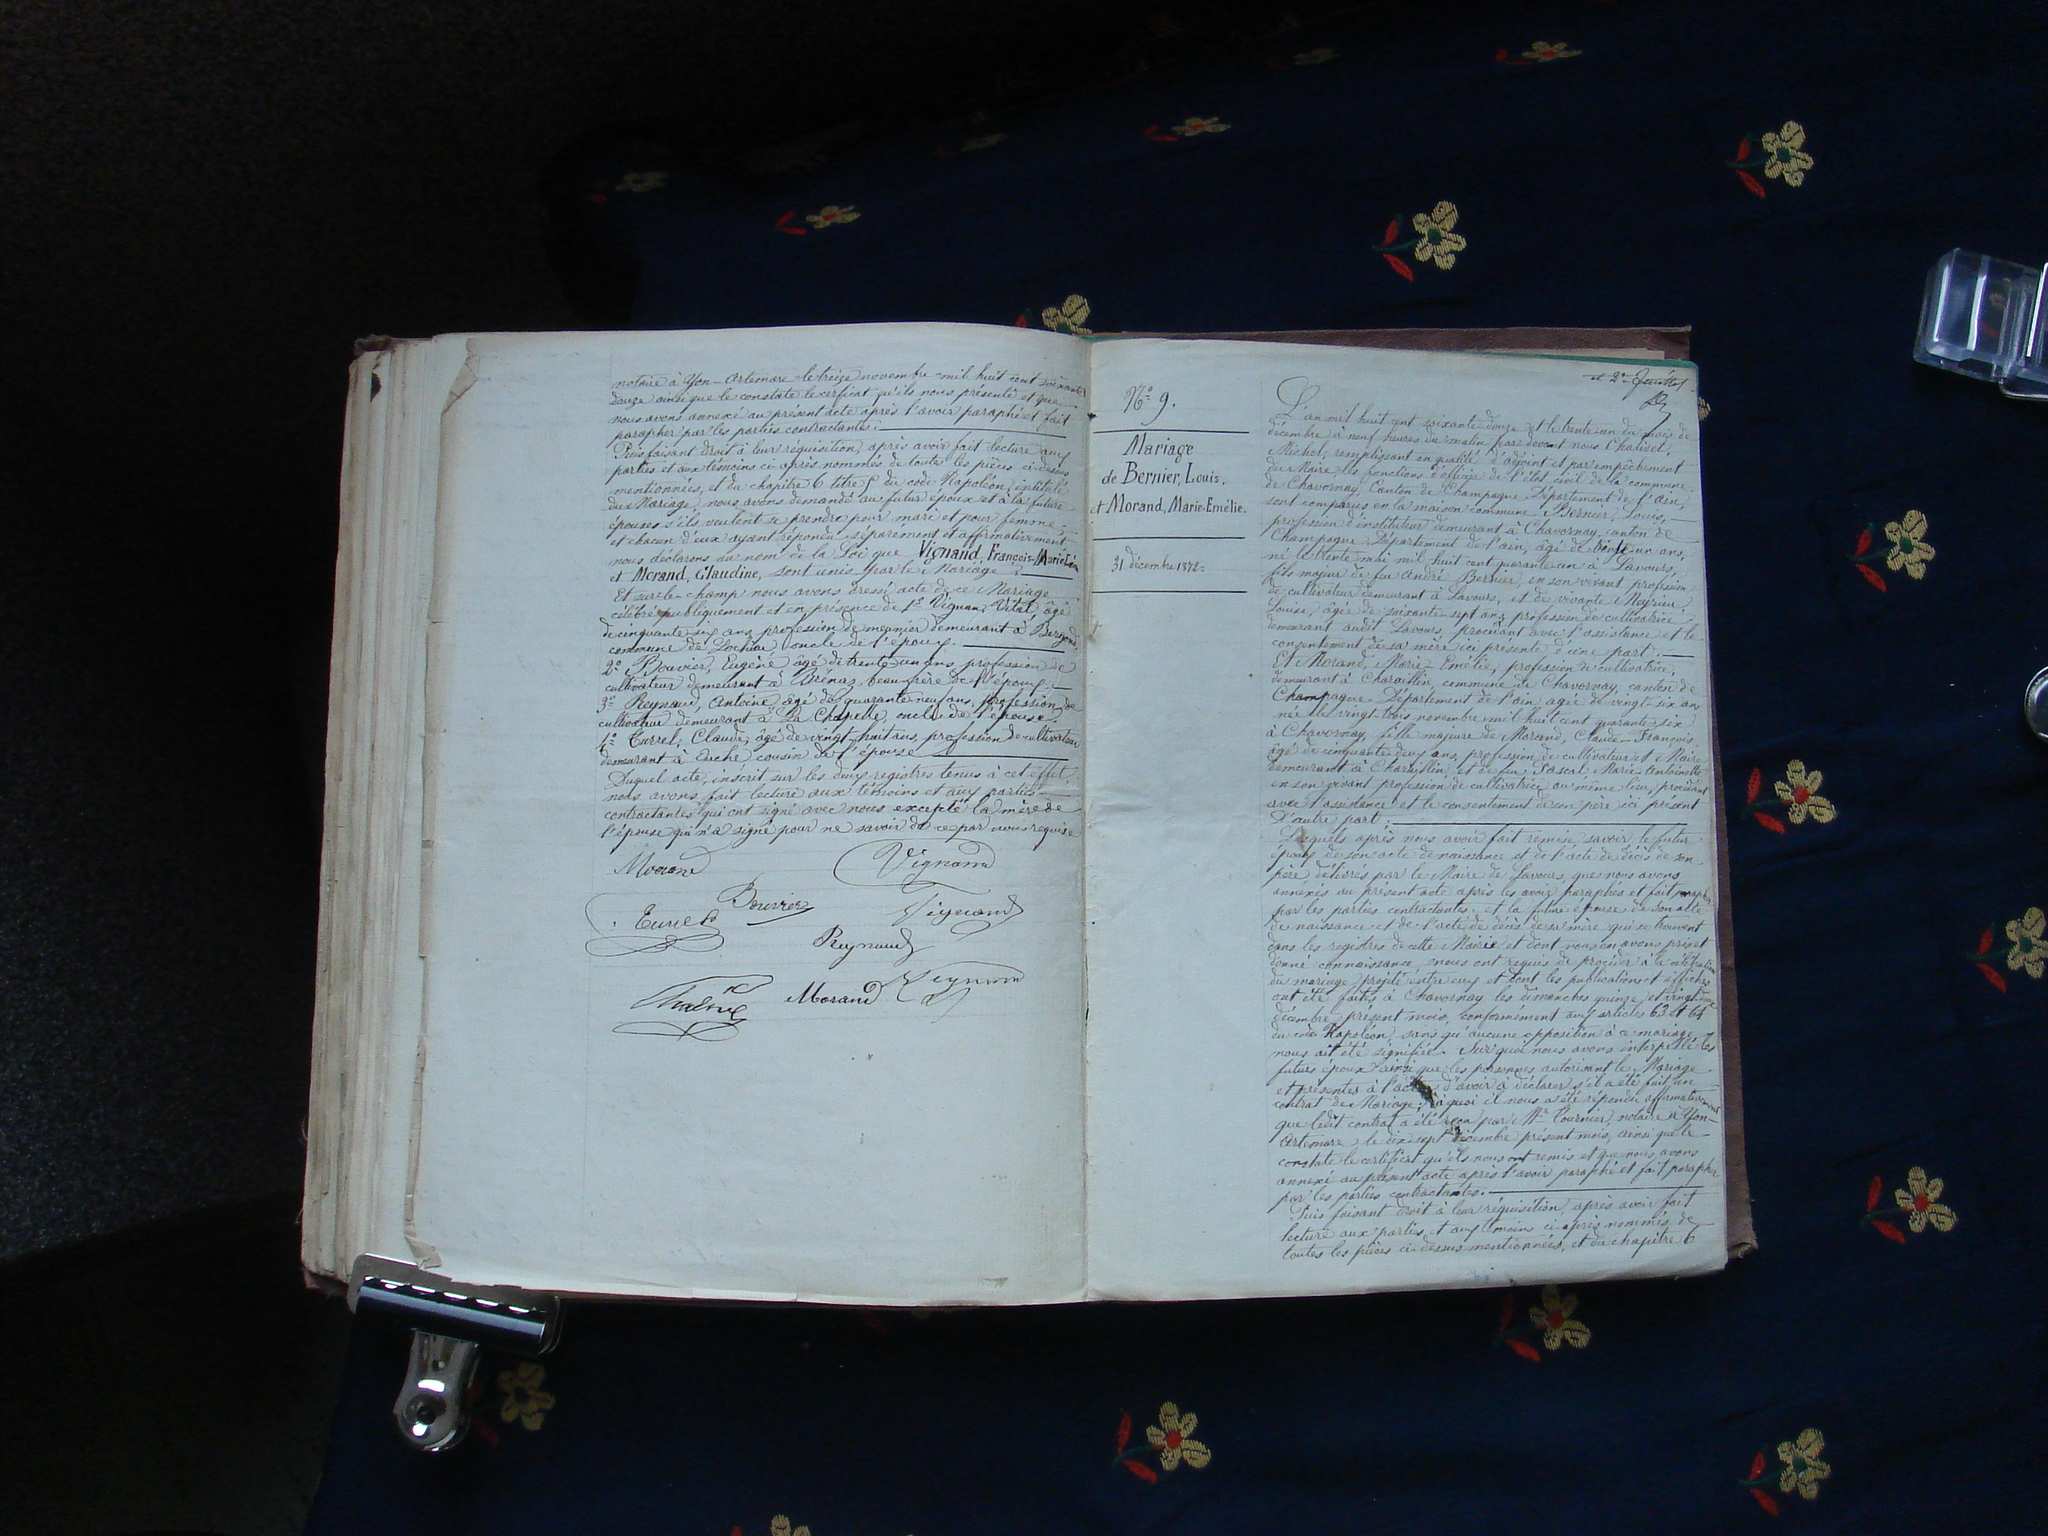 notaire à Yon-Artemare le treize novembre mil huit cent soixante
douze ainsi que le constate le certificat qu'ils nous présenté et que
nous avons annexé au présent acte après l'avoir paraphé et fait
parapher par les parties contractantes.
Puis faisant droit à leur réquisition, après avoir fait lecture aux
parties et aux témoins ci-après nommés de toutes les pièces ci-dessus
mentionnées, et du chapitre 6 titre 5 du code Napoléon, intitulé
du Mariage, nous avons demandé au futur époux et à la future
épouse s'ils veulent se prendre pour mari et pour femme
et chacun d'eux ayant répondu séparément et affirmativement
nous déclarons au nom de la Loi que Vignand, François-Marie
et Morand, Claudine, sont unis par le Mariage;
Et sur-le-champ nous avons dressé acte de ce Mariage
célébré publiquement et en présence de 1° Vignan, Vital, âgé
de cinquante six ans, profession de meunier demeurant à
commune de Lochieu, oncle de l'époux.
2° Bouvier, Eugène âgé de trente-un ans, profession de
cultivateur demeurant à Brénaz, beau-frère de l'époux;
3° Reynaud, Antoine âgé de quarante-neuf ans, profession de
cultivateur demeurant à La Chapelle, oncle de l'épouse.
4° Turrel, Claude, âgé de vingt-huit ans, profession de cultivateur
demeurant à cousin de l'épouse
Duquel acte, inscrit sur les deux registres tenus à cet effet,
nous avons fait lecture aux témoins et aux parties
contractantes qui ont signé avec nous excepté la mère de
l'épouse qui n'a signé pour ne savoir de ce par nous requise
Morand Vignand
Bouvier
Turrel Vignand
Reynaud
Chalivel Morand Vignand
N° 9.
Mariage
de Bernier, Louis.
et Morand, Marie-Emélie.
31 décembre 1872.
et 2e feuillet.
L'an mil huit cent soixante-douze et le trente-un du mois de
décembre à neuf heures du matin, par devant nous Chalivel,
Michel, remplissant en qualité d'adjoint et par empêchement
du Maire les fonctions d'officier de l'état civil de la commune
de Chavornay, Canton de Champagne, Département de l'ain,
sont comparus en la maison commune Bernier, Louis,
profession d'instituteur demeurant à Chavornay, canton de
Champagne, Département de l'ain, âgé de trente-un ans,
né le trente mai mil huit cent quarante-un à Lavours,
fils majeur de feu André Bernier, en son vivant profession
de cultivateur demeurant à Lavours, et de vivante Meyrieu
Louise, âgée de soixante-sept ans, profession de cultivatrice
demeurant audit Lavours, procédant avec l'assistance et le
consentement de sa mère ici présente d'une part.
Et Morand, Marie-Emélie, profession de cultivatrice,
demeurant à Charaillin, commune de Chavornay, canton de
Champagne, Département de l'ain âgée de vingt-six ans
née le vingt-trois novembre mil huit cent quarante-six
à Chavornay, fille majeure de Morand, Claude-François
âgé de cinquante-deux ans, profession de cultivateur et Maire
demeurant à Charaillin et de feu Pascal Marie Antoinette
en son vivant profession de cultivatrice au même lieu, procédant
avec l'assistance et le consentement de son père ici présent
D'autre part;
Lesquels après nous avoir fait remise savoir le futur
époux de son acte de naissance et de l'acte de décès de son
père délivrés par le Maire de Lavours, que nous avons
annexés au présent acte après les avoir paraphés et fait parapher
par les parties contractantes; et la future épouse de son acte
de naissance et de l'acte de décès de sa mère qui se trouvent
dans les registres de cette Mairie et dont nous en avons pris et
donné connaissance, nous ont requis de procéder à la célébration
du mariage projeté entre eux et dont les publications et affiches
ont été faites à Chavornay les dimanches quinze et vingt-deux
décembre présent mois, conformément aux articles 63 et 64
du code Napoléon, sans qu'aucune opposition à ce mariage
nous ait été signifiée. Sur quoi nous avons interpellé les
futurs époux ainsi que les personnes autorisant le Mariage
et présentes à l'acte d'avoir à déclarer s'il a été fait un
contrat de Mariage; à quoi il nous a été répondu affirmativement
que ledit contrat a été reçu par Me Tournier, notaire à Yon-
Artemare, le dix-sept décembre présent mois, ainsi que le
constate le certificat qu'ils nous ont remis et que nous avons
annexé au présent acte après l'avoir paraphé et fait parapher
par les parties contractantes.
Puis faisant droit à leur réquisition, après avoir fait
lecture aux parties et aux témoins ci-après nommés de
toutes les pièces ci-dessus mentionnées, et du chapitre 6